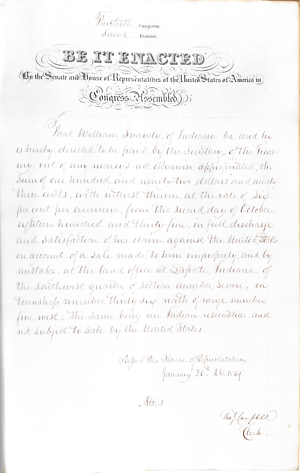 Thirtieth Congress
Second Session.
BE IT ENACTED
By the Senate and House of Representatives of the United States of America in
Congress Assembled,
That William Snavely, of Indiana be and he
is hereby directed to be paid by the Secretary of the Treas-
ury, out of any moneys not otherwise appropriated, the
sum of one hundred and ninety two dollars and ninety
three cents, with interest thereon, at the rate of six
per cent per annum, from the second day of October
eighteen hundred and thirty five, in full discharge
and satisfaction of his claim against the United States
on account of a sale made to him improperly, and by
mistake, at the land office at Laporte, Indiana, of
the southwest quarter of section number seven, in
township number thirty six north of range number
five west, the same being an Indian reservation and
not subject to sale by the United States.
Passed the House of Representatives
January 26th AD. 1849.
Attest
Tho. J. Campbell
Clerk